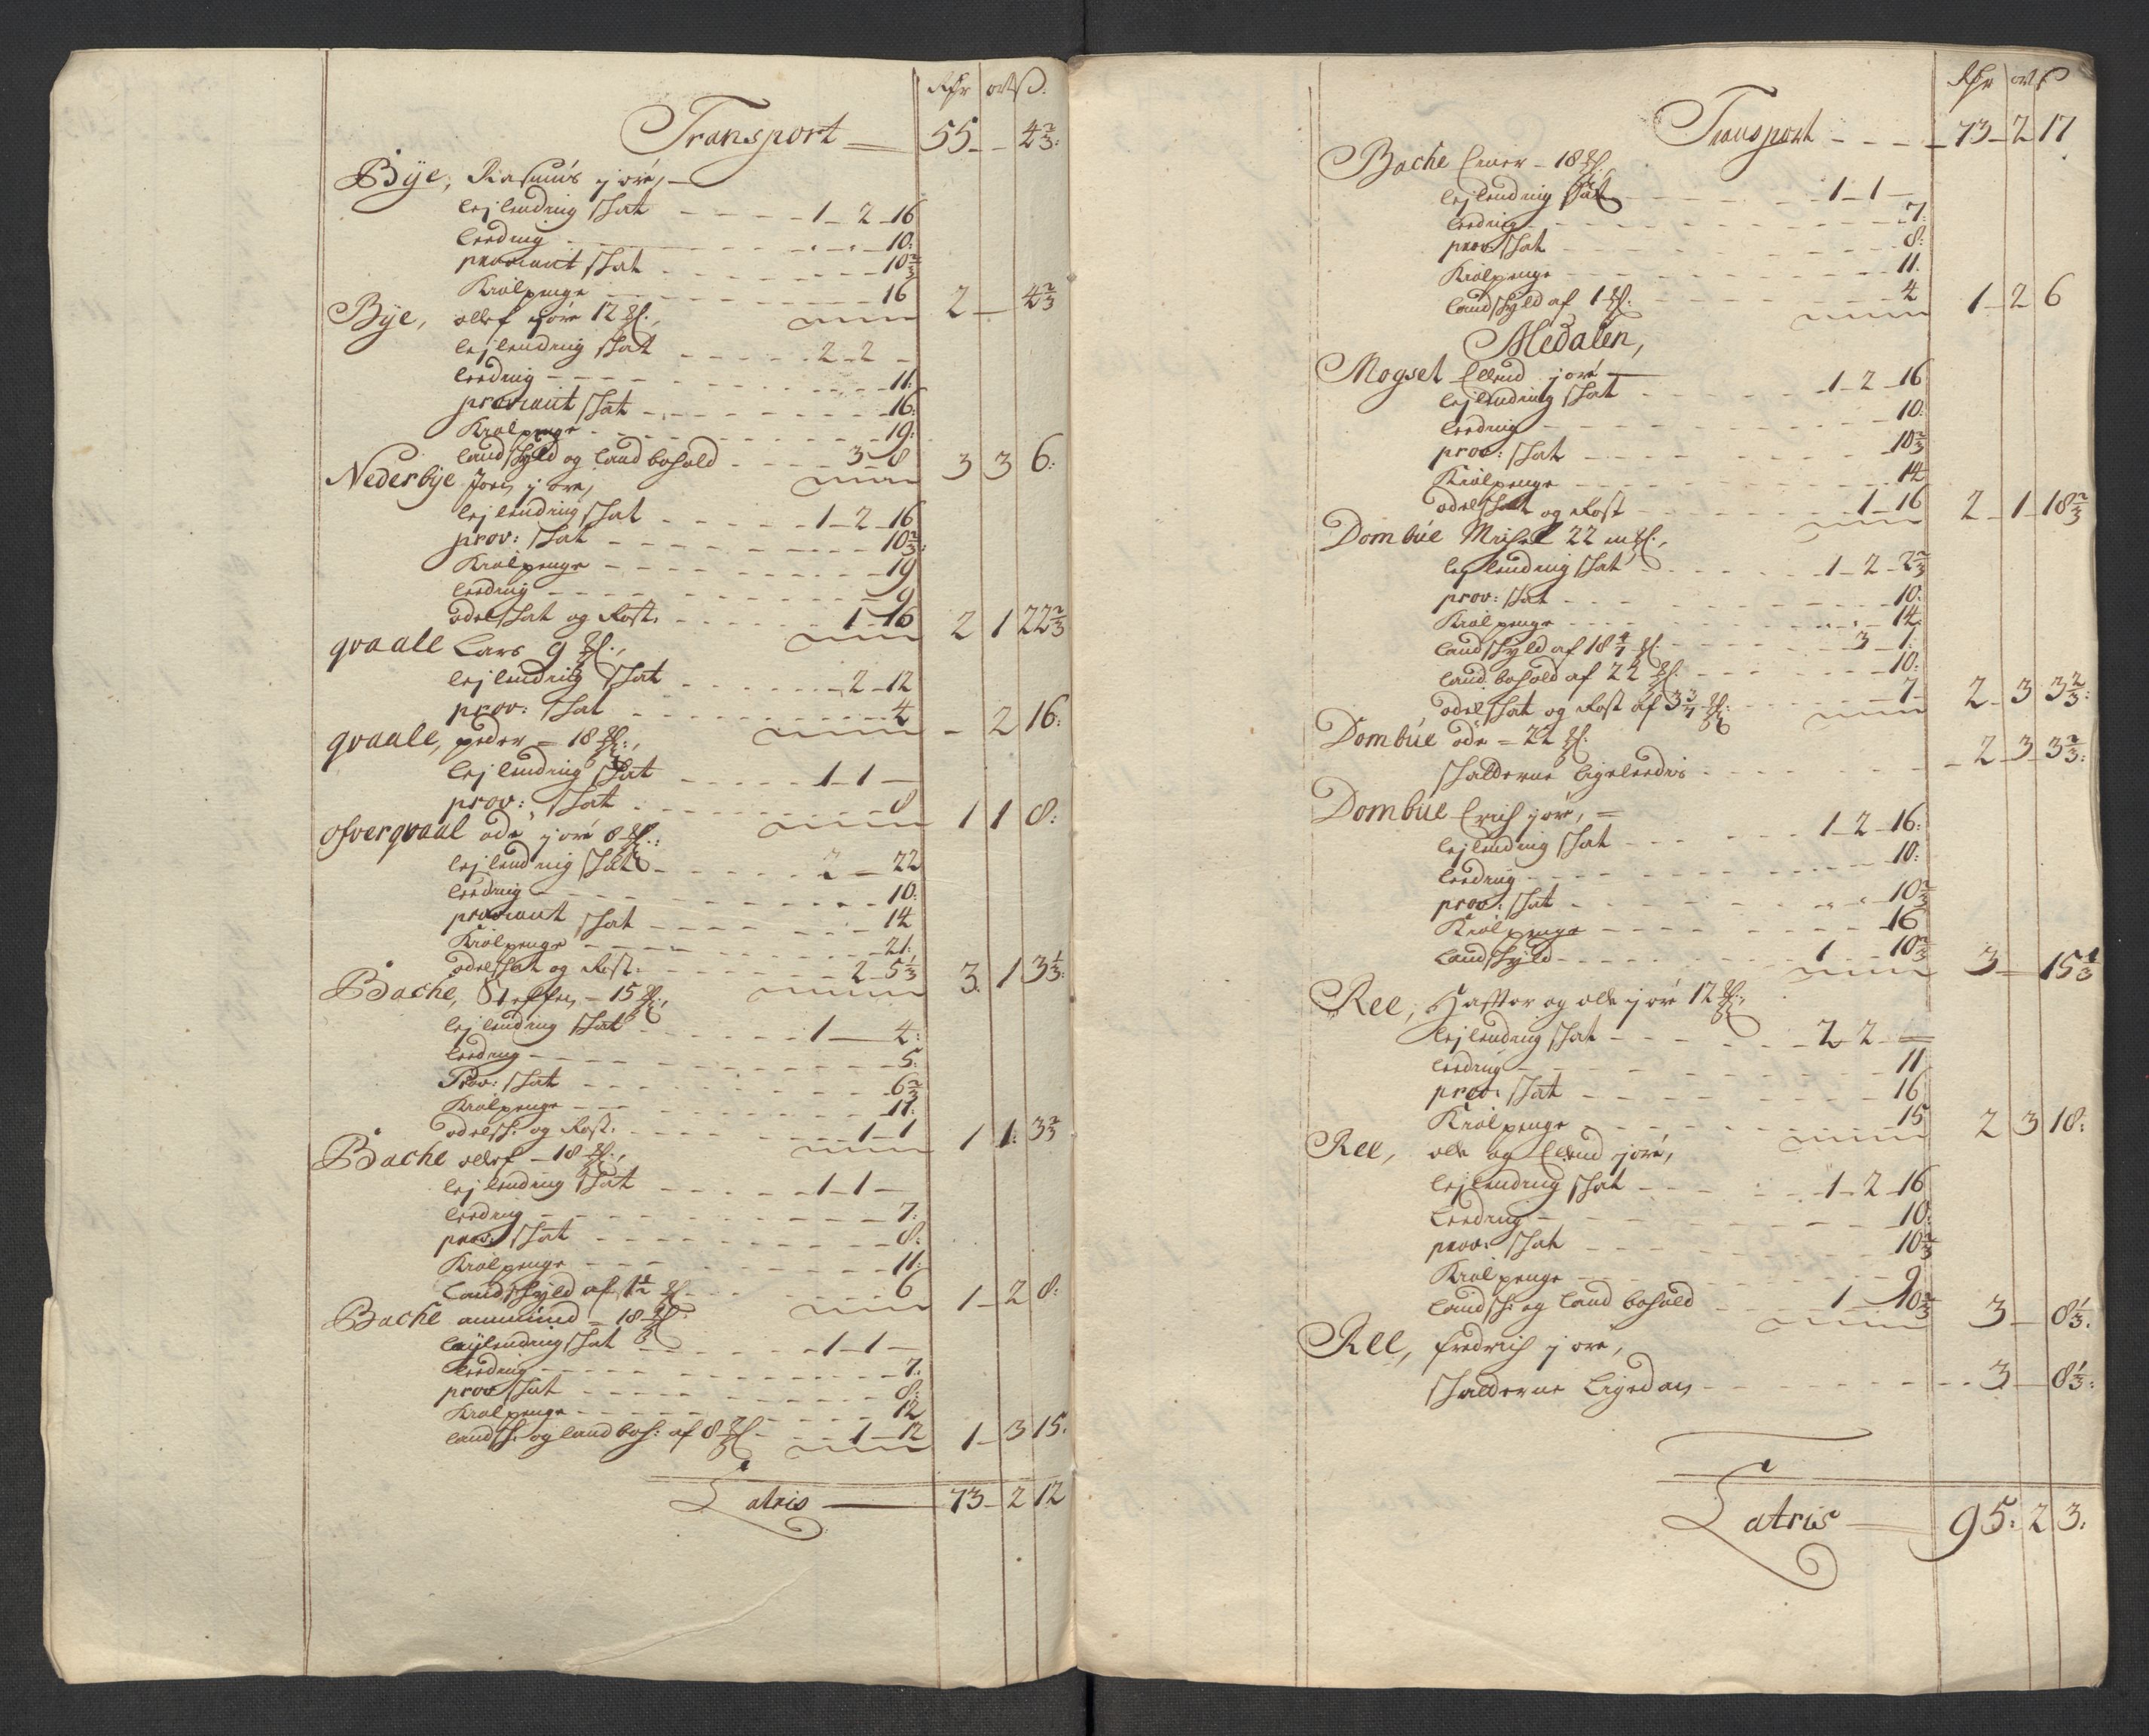 Rdr ort ß.
Transport 55 - - 4 2/3:
Bÿe, Rasmus j øre,
lejlending skat 1 - 2 - 16
leeding 10:
proviant skat 10 2/3
Kiølpenge 16 2 - 4 2/3
Bÿe, ollef j øre 12
lejlending skat 2 - 2 -
leeding 11:
proviant skat 16:
Kiølpenge 19:
landskyld og land bohold 3 - 8 3 3 6:
Nederbÿe Joen j øre,
lejlending skat 1 - 2 - 16
prov: skat 10 2/3:
Kiølpenge 19
leeding 9
odelskat og Rost. 1 - 16 2 1 22 2/3
qvaale Lars 9
lejlending skat 2 - 12
prov: skat 4 - 2 16:
qvaale, peder - 18
lejlending skat 1 - 1 -
prov: skat 8 1 1 8:
ofverqvaal øde j øre 8
lejlending skat 2 - 22
leeding 10:
proviant skat 14
Kiølpenge 21:
odelskat og Rost. 2 - 5 1/3 3. 1 3 1/3:
Bache, Steffen - 15
lejlending skat 1 - 4:
leeding 5:
Prov: skat 6 2/3
Kiølpenge 11:
odelsk: og Rost. 1 - 1 1 1. 3 2/3
Bache ollef - 18
lejlending skat 1 - 1 -
leeding 7:
prov: skat 8:
Kiølpenge 11:
landskyld af 1 1/2 6 1 - 2 8:
Bache ammund - 18
leÿlending skat 1 - 1 -
leeding 7.
prov skat 8:
Kiølpenge 12
landsk: og land boh: af 8 1 - 12 1 - 3 15.
Latris 73 - 2 12
Rdr ort ß
Transport 73 - 2 17
Bache Einer - 18
lejlending skat 1 - 1 -
leeding 7:
prov: skat 8:
Kiølpenge 11.
landskyld af 1 4 1 - 2 6
Medalen,
Mogset Ellend j øre
lejlending skat 1 - 2 - 16
leeding 10:
prov: skat 10 2/3
Kiølpenge 14
odelskat og Rost 1 - 16 2 - 1 - 18 2/3
Dombúe Michel 22
lejlending skat 1 - 2 - 2 2/3
prov: skat 10:
Kiølpenge 14:
landskyld af 18 4/7 3 - 1:
land bohold af 22 10:
odelskat og Rost af 3 3/7 7 - 2 - 3 3 2/3:
Dombúe øde - 22
skatterne ligeledis - 2 - 3 - 3 2/3:
Dombúe Erich j øre,
lejlending skat 1 - 2 - 16:
leeding 10:
prov: skat 10 2/3
Kiølpenge 16
landskyld 1 - 10 2/3 3 - 15 1/3
Ree, Haftor og olle j øre 12
lejlending skat 2 - 2
leeding 11
prov: skat 16
Kiølpenge 15 2 3 18:
Ree, olle og Ellend j øre,
lejlending skat 1 - 2 - 16
Leeding 10:
prov: skat 10 2/3
Kiølpenge 9
landsk: og land bohold 1 - 10 2/3 3 - 8 1/3.
Ree, fredrich j øre,
skatterne ligedan 3 - 8 1/3:
Latris 95: 2 3: